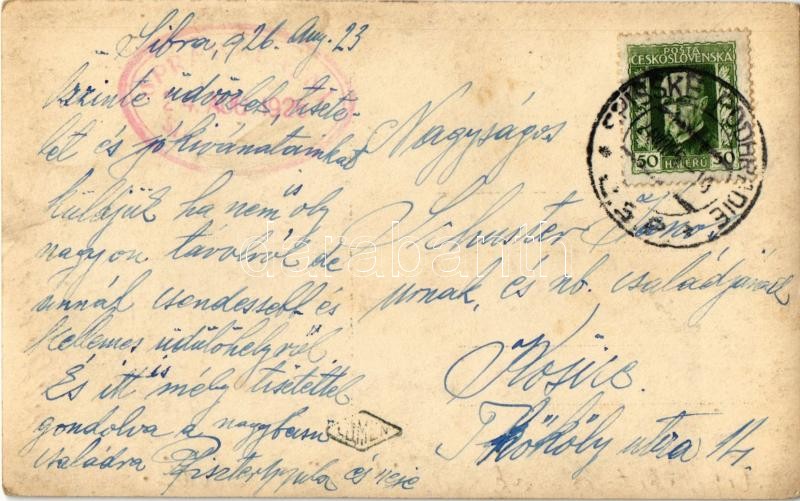 Sibra, 926. Aug. 23
Őszinte üdvözlet, tisztele-
tet és jókivánatainkat
küldjük ha nem is oly
nagyon távolról de
annál csendesebb és
kellemes üdülőhelyről
És itt is mély tisztelettel
gondolva a nagybecsű
családra
és neje
Nagyságos
Schuster
urnak, és nb. családjának
Košice.
Thököly utca 14.
POŠTA
ČESKOSLOVENSKÁ
50 HALÉŘŮ 50
SPIŠSKÉ PODHRADIE
darabanth